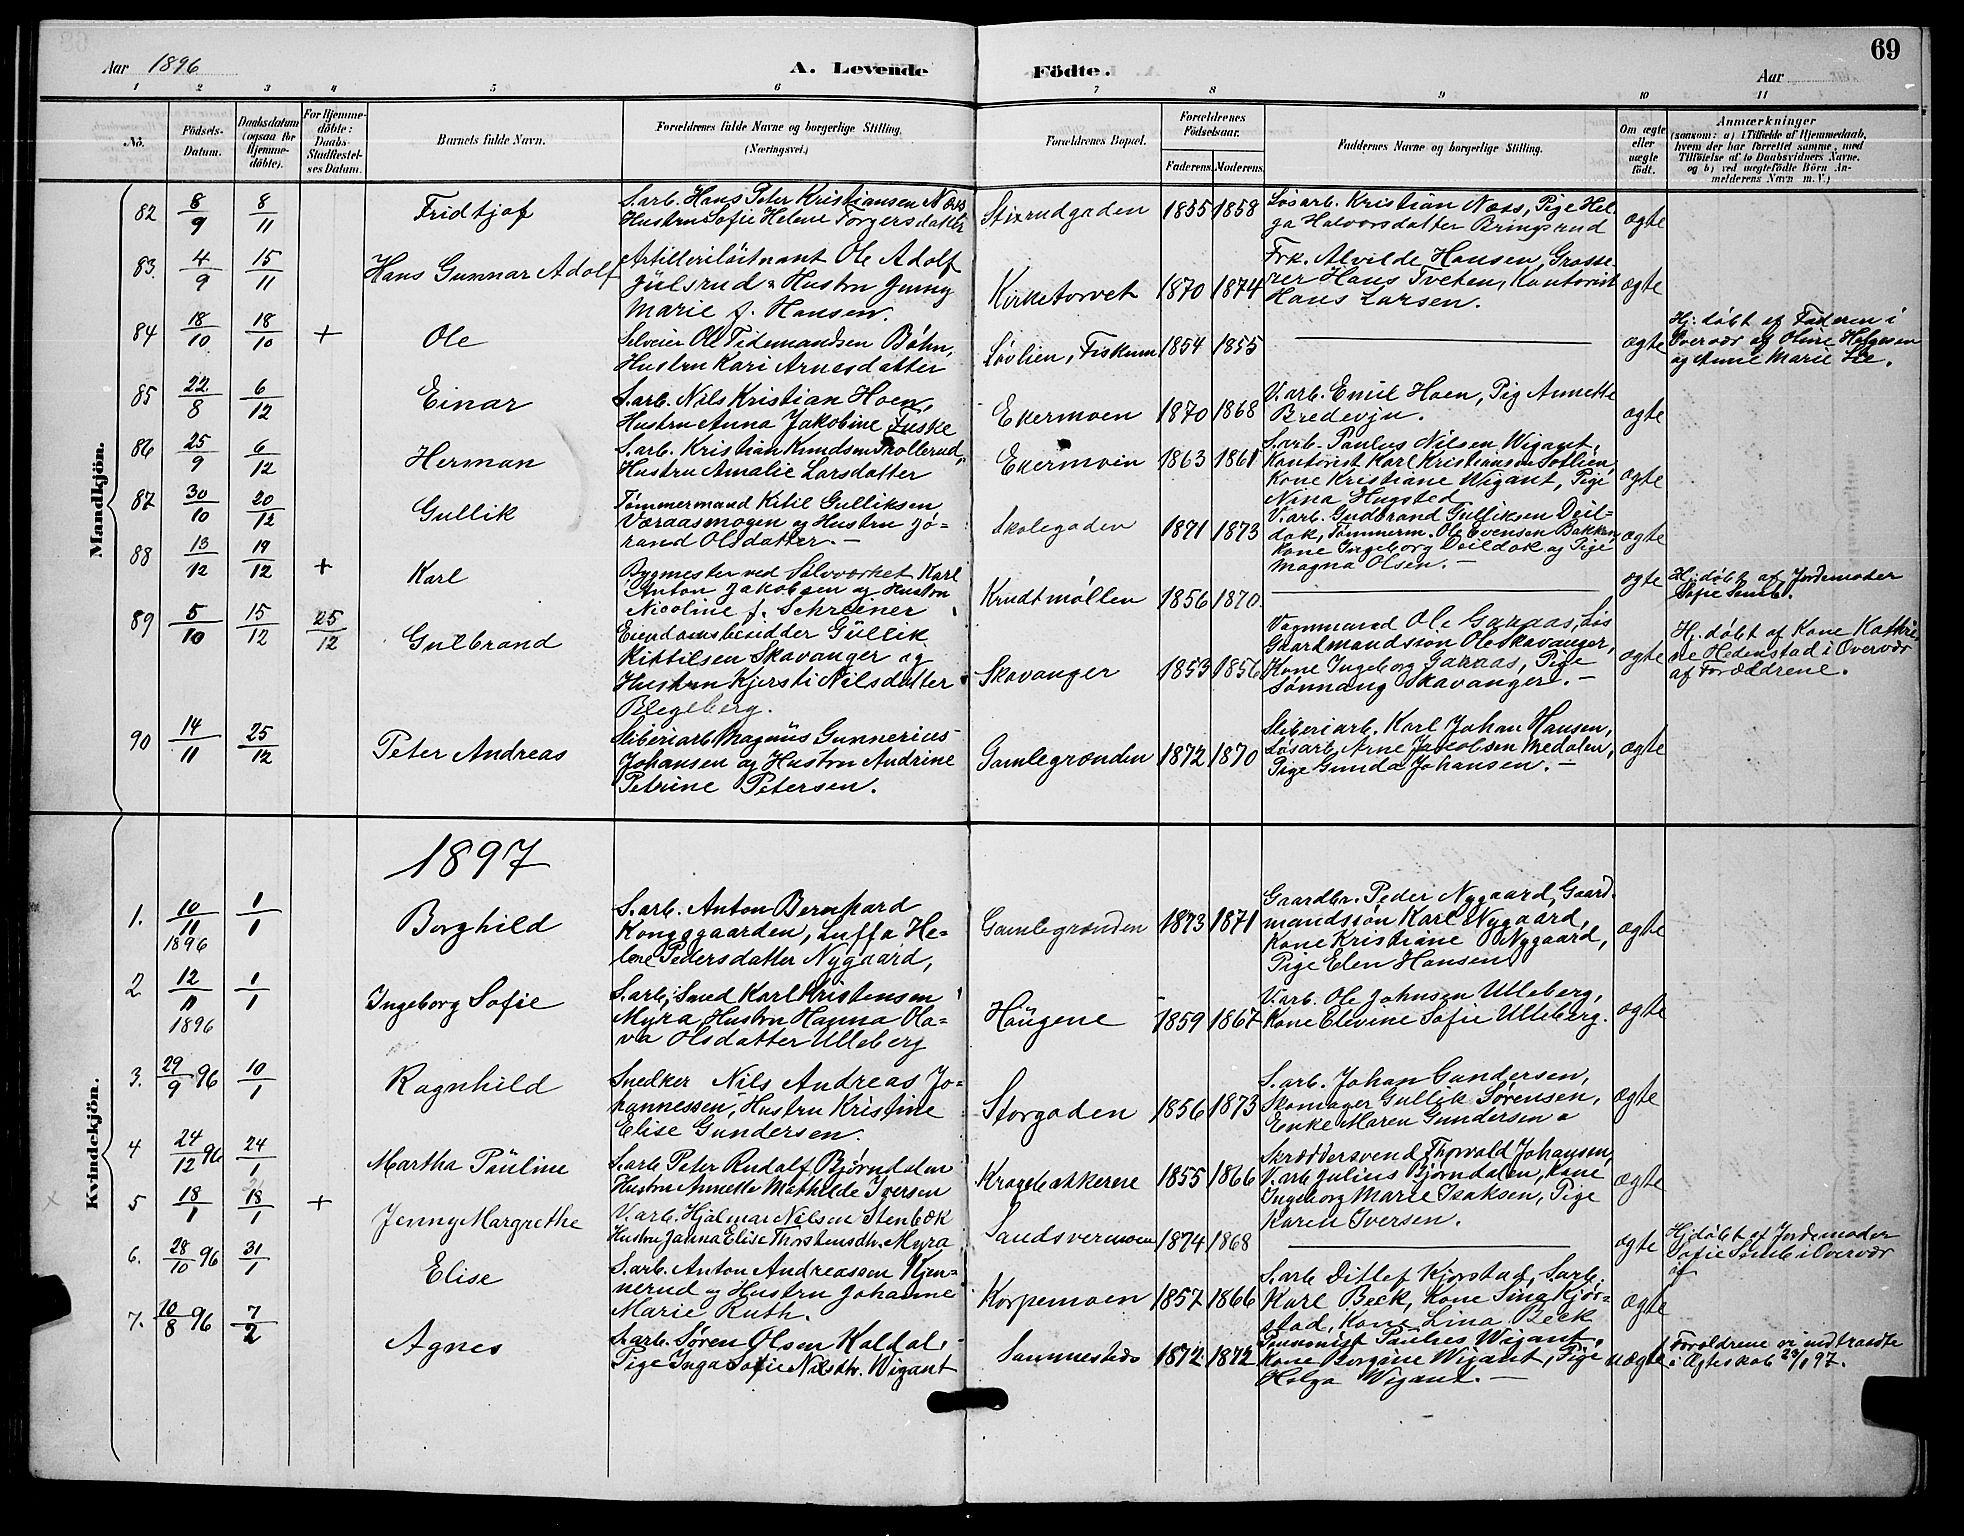 69
Aar 1896
A. Levende Födte.
Aar
1 2 3 4 5 6 7 8 9 10 11
No.
Födsels-
Datum.
Daabsdatum
(ogsaa for
Hjemme-
döbte).
For Hjemme-
döbte:
Daabs-
Stadfæstel-
ses Datum.
Barnets fulde Navn.
Forældrenes fulde Navne og borgerlige Stilling.
(Næringsvei.)
Forældrenes Bopæl.
Forældrenes
Födselsaar.
Faderens. Moderens.
Faddernes Navne og borgerlige Stilling.
Om ægte
eller
uægte
födt.
Anmærkninger
(saasom: a) i Tilfælde af Hjemmedaab,
hvem der har forrettet samme, med
Tilföielse af to Daabsvidners Navne,
og b) ved uægtefödte Börn An-
melderens Navn m. V.)
Mandkjön.
82 8/9 8/11 Fridtjof
S.arb. Hans Peter Kristiansen Næss
Hustru Sofie Helene Torgersdatter
Stixrudgaden 1855 1858
Løsarb. Kristian Næss, Pige Hel-
ga Halvorsdatter Bringsrud
ægte
83. 4/9 15/11 Hans Gunnar Adolf
Artilleriløitnant Ole Adolf
Gülsrud & Hustru Jenny
Marie f. Hansen.
Kirketorvet 1870 1874
Frk. Alvilde Hansen, Grosse-
rer Hans Tveten, Kontorist
Hans Larsen.
ægte
84 18/10 18/10 + Ole
Selveier Ole Tidemandsen Bøhn,
Hustru Kari Arnesdatter
Løvlien, Fiskum 1854 1855
ægte
Hj. døbt af Faderen i
Overvær af Oline Helgesen
og Anne Marie Lie.
85 22/8 6/12 Einar
S.arb. Nils Kristian Hoen,
Hustru Anna Jakobine Fuske
Ekermoen 1870 1868
V.arb. Emil Hoen, Pig Annette
Bredevjn.
ægte
86 25/9 6/12 Herman
S.arb. Kristian Knudsen Skollerud,
Hustru Amalie Larsdatter
Ekermoen 1863 1861
S.arb. Paulus Nilsen Wigant,
Kontorist Karl Kristiansen Sotlien,
Kone Kristiane Wigant, Pige
Nina Hugsted
ægte
87 30/10 20/12 Gullik
Tømmermand Kitil Gulliksen
Væraasmogen og Hustru Jø-
rand Olsdatter. —
Skolegaden 1871 1873
V.arb. Gudbrand Gulliksen Deil-
dok, Tømmerm. Ole Evensen Bakken,
Kone Ingeborg Deildok og Pige
Magna Olsen. —
ægte
88 13/12 19/12 + Karl
Bygmester ved Sølvværket Karl
Anton Jakobsen og Hustru
Nicoline f. Schreiner
Krudtmøllen 1856 1870
ægte
Hj. døbt af Jordemoder
Sofie Semb.
89 5/10 15/12 25/12 Gulbrand
Eiendomsbesidder Güllik
Kittilsen Skavanger og
Hustru Kjersti Nilsdatter
Blegeberg.
Skavanger 1853 1856
Vognmand Ole Garaas,
Gaardmandssøn Ole Skavanger,
Kone Ingeborg Garaas, Pige
Sønnaug Skavanger. —
ægte
Hj. døbt af Kone Kathri-
ne Hedenstad i Overvær
af Forældrene.
90 14/11 25/12 Peter Andreas
Sliberiarb. Magnus Gunnerius
Johansen og Hustru Andrine
Petrine Petersen.
Gamlegrænden 1872 1870
Sliberiarb. Karl Johan Hansen,
Løsarb. Arne Jakobsen Medalen,
Pige Gunda Johansen. —
ægte
1897
Kvindekjön.
1. 10/11 1896 1/1 Borghild
S.arb. Anton Bernhard
Kongsgaarden, Luffa He-
lene Pedersdatter Nygaard,
Gamlegrænden 1873 1871
Gaardbr. Peder Nygaard, Gaard-
mandssøn Karl Nygaard,
Kone Kristiane Nygaard,
Pige Elen Hansen
ægte
2. 12/11 1896 1/1 Ingeborg Sofie
S.arb, Smed Karl Kristensen
Myra, Hustru Hanna Ola-
va Olsdatter Ulleberg
Haügene 1859 1867
V.arb. Ole Johnsen Ulleberg,
Kone Elevine Sofie Ulleberg.
ægte
3. 29/9 96 10/1 Ragnhild
Snedker Nils Andreas Jo-
hannessen, Hustru Kristine
Elise Gundersen.
Storgaden 1856 1873
S.arb. Johan Gundersen,
Skomager Gullik Sørensen,
Enke Maren Gundersen
ægte
4 24/12 96 24/1 Martha Pauline
S.arb. Peter Rudolf Bjørndalen
Hustru Annette Mathilde Iversen
Kragebakkerne 1855 1866
Skræddersvend Thorvald Johansen,
V.arb. Julius Bjørndalen, Kone
Ingeborg Marie Isaksen, Pige
Karen Iversen.
ægte
5 18/1 18/1 + Jenny Margrethe
V.arb. Hjalmar Nilsen Stenbæk
Hustru Janna Elise Thorstensdtr. Myra
Sandsvermoen 1874 1868
ægte
Hj. døbt af Jordemoder
Sofie Semb i Overvær
af
6. 28/10 96 31/1 Elise
S.arb. Anton Andreassen Hjen-
nerud og Hustru Johanne
Marie Ruth.
Korpemoen 1857 1866
S.arb. Ditlef Kjørstad, S.arb.
Karl Beck, Kone Sina Kjør-
stad, Kone Lina Beck
ægte
7. 10/8 96 7/2 Agnes
S.arb. Søren Olsen Koldal,
Pige Inga Sofie Nilsdtr. Wigant
Sammesteds 1872 1872
Pensionist Paulus Wigant,
Kone Borgine Wigant, Pige
Helga Wigant. —
uægte
Forældrene vi indtraadte
i Ægteskab 23/1 97.